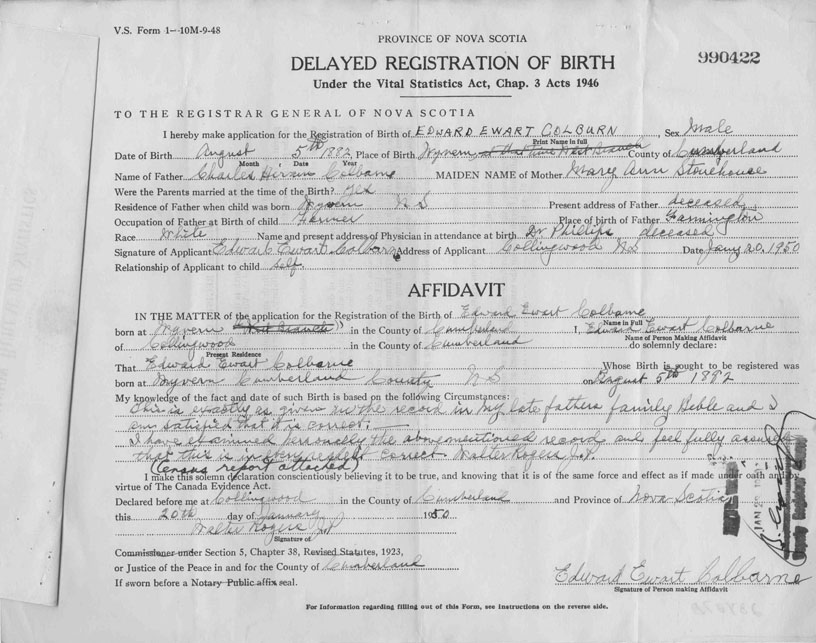 V.S. Form 1--10M-9-48
PROVINCE OF NOVA SCOTIA
DELAYED REGISTRATION OF BIRTH
990422
Under the Vital Statistics Act, Chap. 3 Acts 1946
TO THE REGISTRAR GENERAL OF NOVA SCOTIA
I hereby make application for the Registration of Birth of EDWARD EWART COLBURN, Sex Male
Print Name in full
Date of Birth August 5th 1882, Place of Birth Wyvern, at that time West Branch County of Cumberland
Month Date Year
Name of Father Charles Hiram Colbarne MAIDEN NAME of Mother Mary Ann Stonehouse
Were the Parents married at the time of the Birth? yes
Residence of Father when child was born Wyvern N S Present address of Father deceased
Occupation of Father at Birth of child Farmer Place of birth of Father Farmington
Race White Name and present address of Physician in attendance at birth Dr Phillips deceased
Signature of Applicant Edward Ewart Colbarne Address of Applicant Collingwood N S Date Jany 20, 1950
Relationship of Applicant to child self.
AFFIDAVIT
IN THE MATTER of the application for the Registration of the Birth of Edward Ewart Colbarne
Name in Full
born at Wyvern (West Branch) in the County of Cumberland I, Edward Ewart Colbarne
Name of Person Making Affidavit
of Collingwood in the County of Cumberland do solemnly declare:
Present Residence
That Edward Ewart Colbarne Whose Birth is sought to be registered was
born at Wyvern Cumberland County N S on August 5th 1882
My knowledge of the fact and date of such Birth is based on the following Circumstances:
This is exactly as given in the record in my late fathers family Bible and I
am satisfied that it is correct:—
I have examined personally the above mentioned record and feel fully assured
that this is in every respect correct Walter Rogers J.P.
(Census report attached)
I make this solemn declaration conscientiously believing it to be true, and knowing that it is of the same force and effect as if made under oath and by
virtue of The Canada Evidence Act.
Declared before me at Collingwood in the County of Cumberland and Province of Nova Scotia
this 20th day of January 1950
Walter Rogers J.P
Signature of
Commissioner under Section 5, Chapter 38, Revised Statutes, 1923,
or Justice of the Peace in and for the County of Cumberland
If sworn before a Notary Public affix seal.
Edward Ewart Colbarne
Signature of Person making Affidavit
For Information regarding filling out of this Form, see instructions on the reverse side.